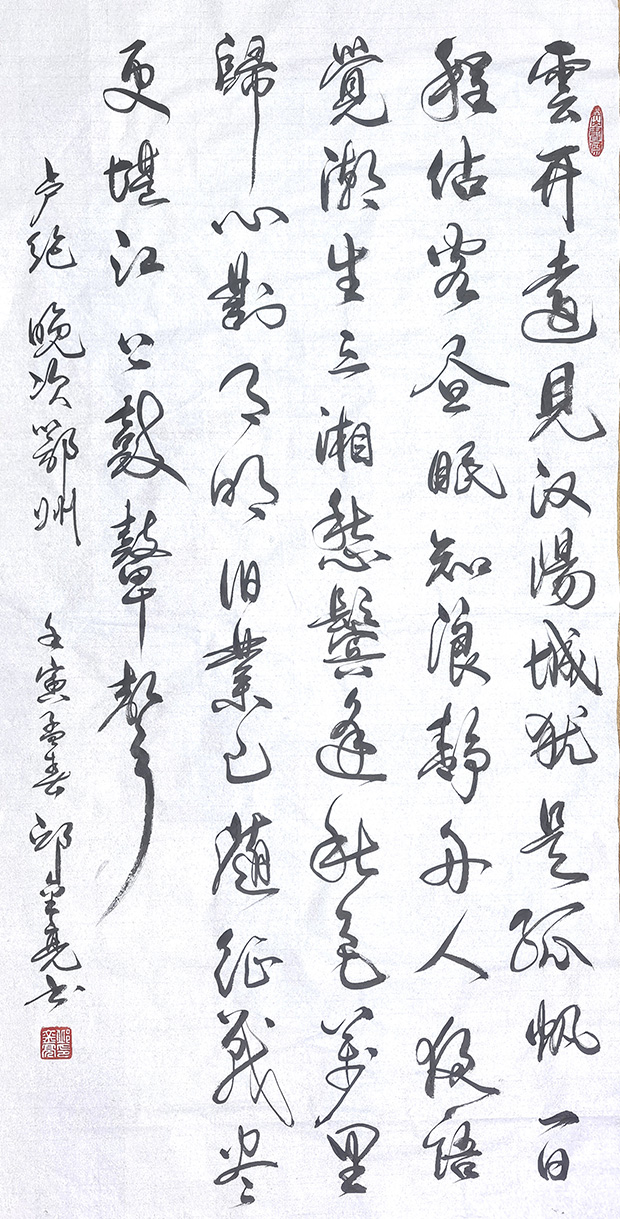 雲开遠見汉陽城犹是孤帆一日
程估客昼眠知浪静舟人夜語
覺潮生三湘愁鬢逢秋色萬里
歸心對月明旧業已隨征战尽
更堪江上鼓鼙聲
卢纶 晚次鄂州 壬寅孟春 邱金亮书